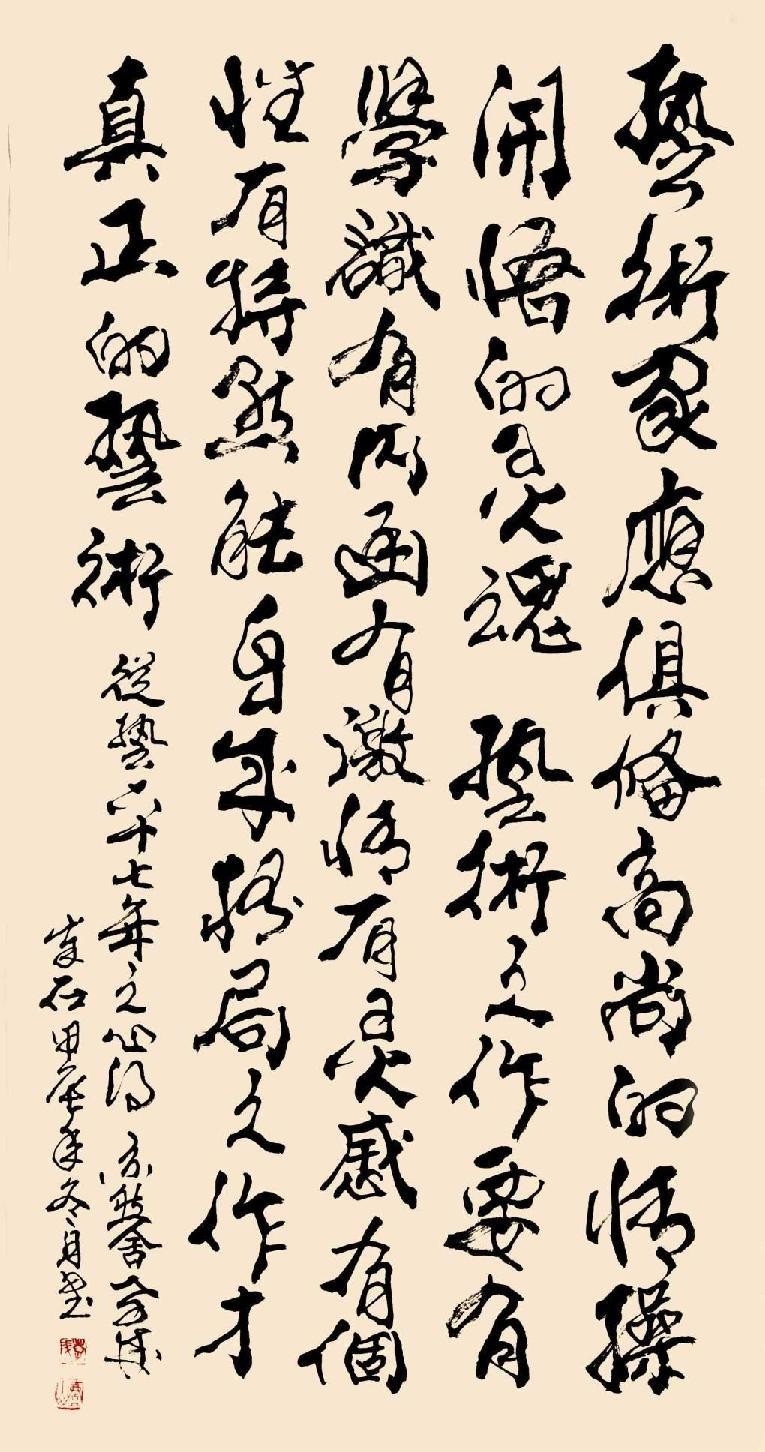 藝術家應俱備高尚的情操
開悟的灵魂 藝術之作要有
學識有内涵有激情有灵感有個
性有特點能自成格局之作才
真正的藝術 從藝六十七年之心得
岁在甲辰年冬月書